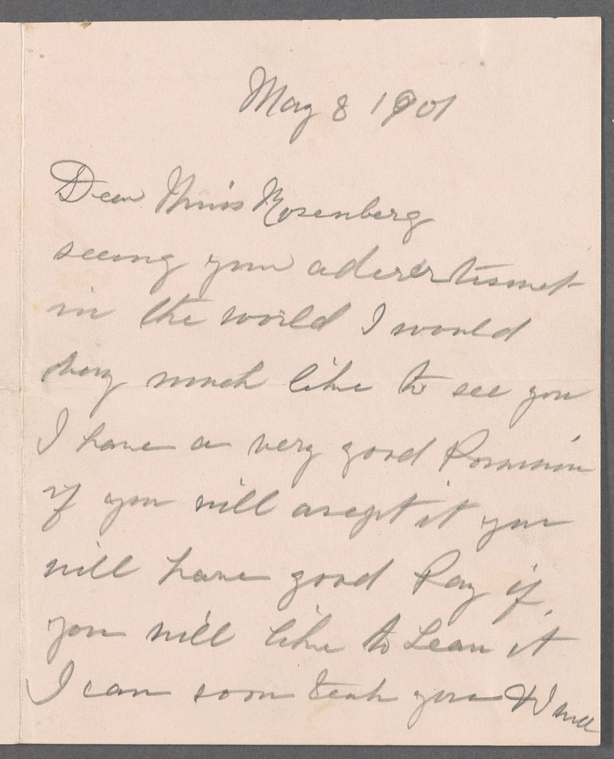 May 8 1901
Dear Miss Rosenberg
seeing your adverertismet
in the world I would
very much like to see you
I have a very good Possision
if you will acept it you
will have good Pay if
you will like to Lean it
I can soon teach you